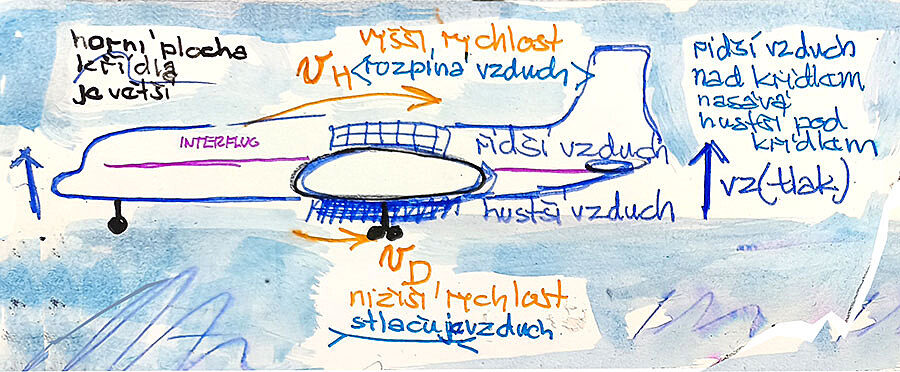 horní plocha
křídla
je větší
vyšší rychlost
v H <rozpíná vzduch>
INTERFLUG
řidší vzduch
hustší vzduch
řidší vzduch
nad křídlem
nasává
hustší pod
křídlem
vz(tlak)
v D
nižší rychlost
stlačuje vzduch